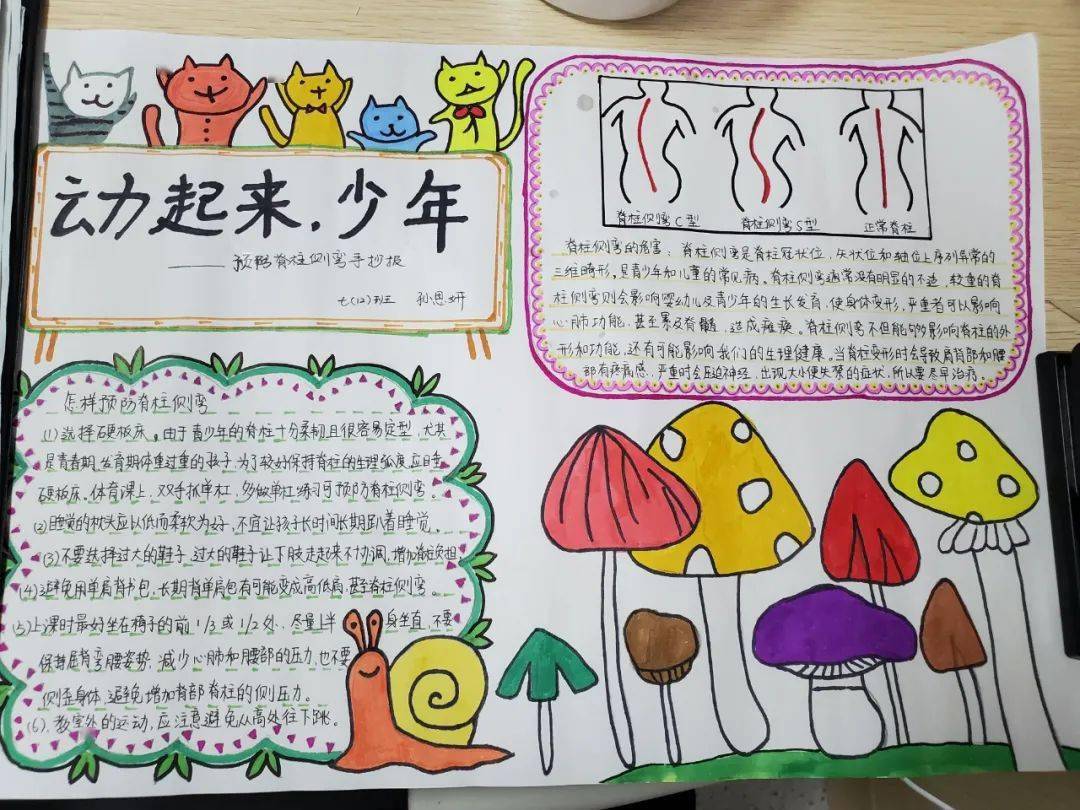 动力起来,少年
——预防脊柱侧弯手抄报
七(12)班 孙思妍
脊柱侧弯C型 脊柱侧弯S型 正常脊柱
脊柱侧弯的危害:脊柱侧弯是脊柱冠状位,矢状位和轴位上序列异常的
三维畸形,是青少年和儿童的常见病。脊柱侧弯通常没有明显的不适,较重的脊
柱侧弯则会影响婴幼儿及青少年的生长发育,使身体变形,严重者可以影响
心肺功能.甚至累及脊髓,造成瘫痪。脊柱侧弯不但能够影响脊柱的外
形和功能,还有可能影响我们的生理健康。当脊柱变形时会导致肩背部和腰
部有疼痛感,严重时会压迫神经,出现大小便失禁的症状,所以要尽早治疗。
怎样预防脊柱侧弯
(1)选择硬板床。由于青少年的脊柱十分柔韧且很容易定型,尤其
是青春期.发育期体重过重的孩子.为了较好保持脊柱的生理弧度应睡
硬板床。体育课上,双手抓单杠,多做单杠练习可预防脊柱侧弯。
(2)睡觉的枕头应以低而柔软为好,不宜让孩子长时间长期趴着睡觉。
(3)不要选择过大的鞋子,过大的鞋子让下肢走起来不协调,增加脊柱负担
(4)避免用单肩背书包,长期背单肩包有可能变成高低肩,甚至脊柱侧弯。
(5)上课时最好坐在椅子的前1/3或1/2处,尽量上半身坐直,不要
保持屈背弯腰姿势,减少心肺和腰部的压力,也不要
侧歪身体,避免增加背部脊柱的侧压力。
(6).教室外的运动,应注意避免从高处往下跳。